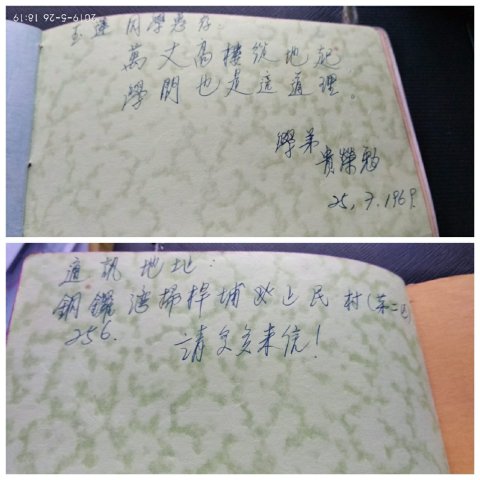 2019-5-26 18:19
玉蓮同學惠存:
萬丈高樓從地起
學問也是這道理。
學弟
貴榮勉
25,7.1969.
通訊地址:
銅鑼灣掃桿埔 上民村(第二
256.
請交友來信!